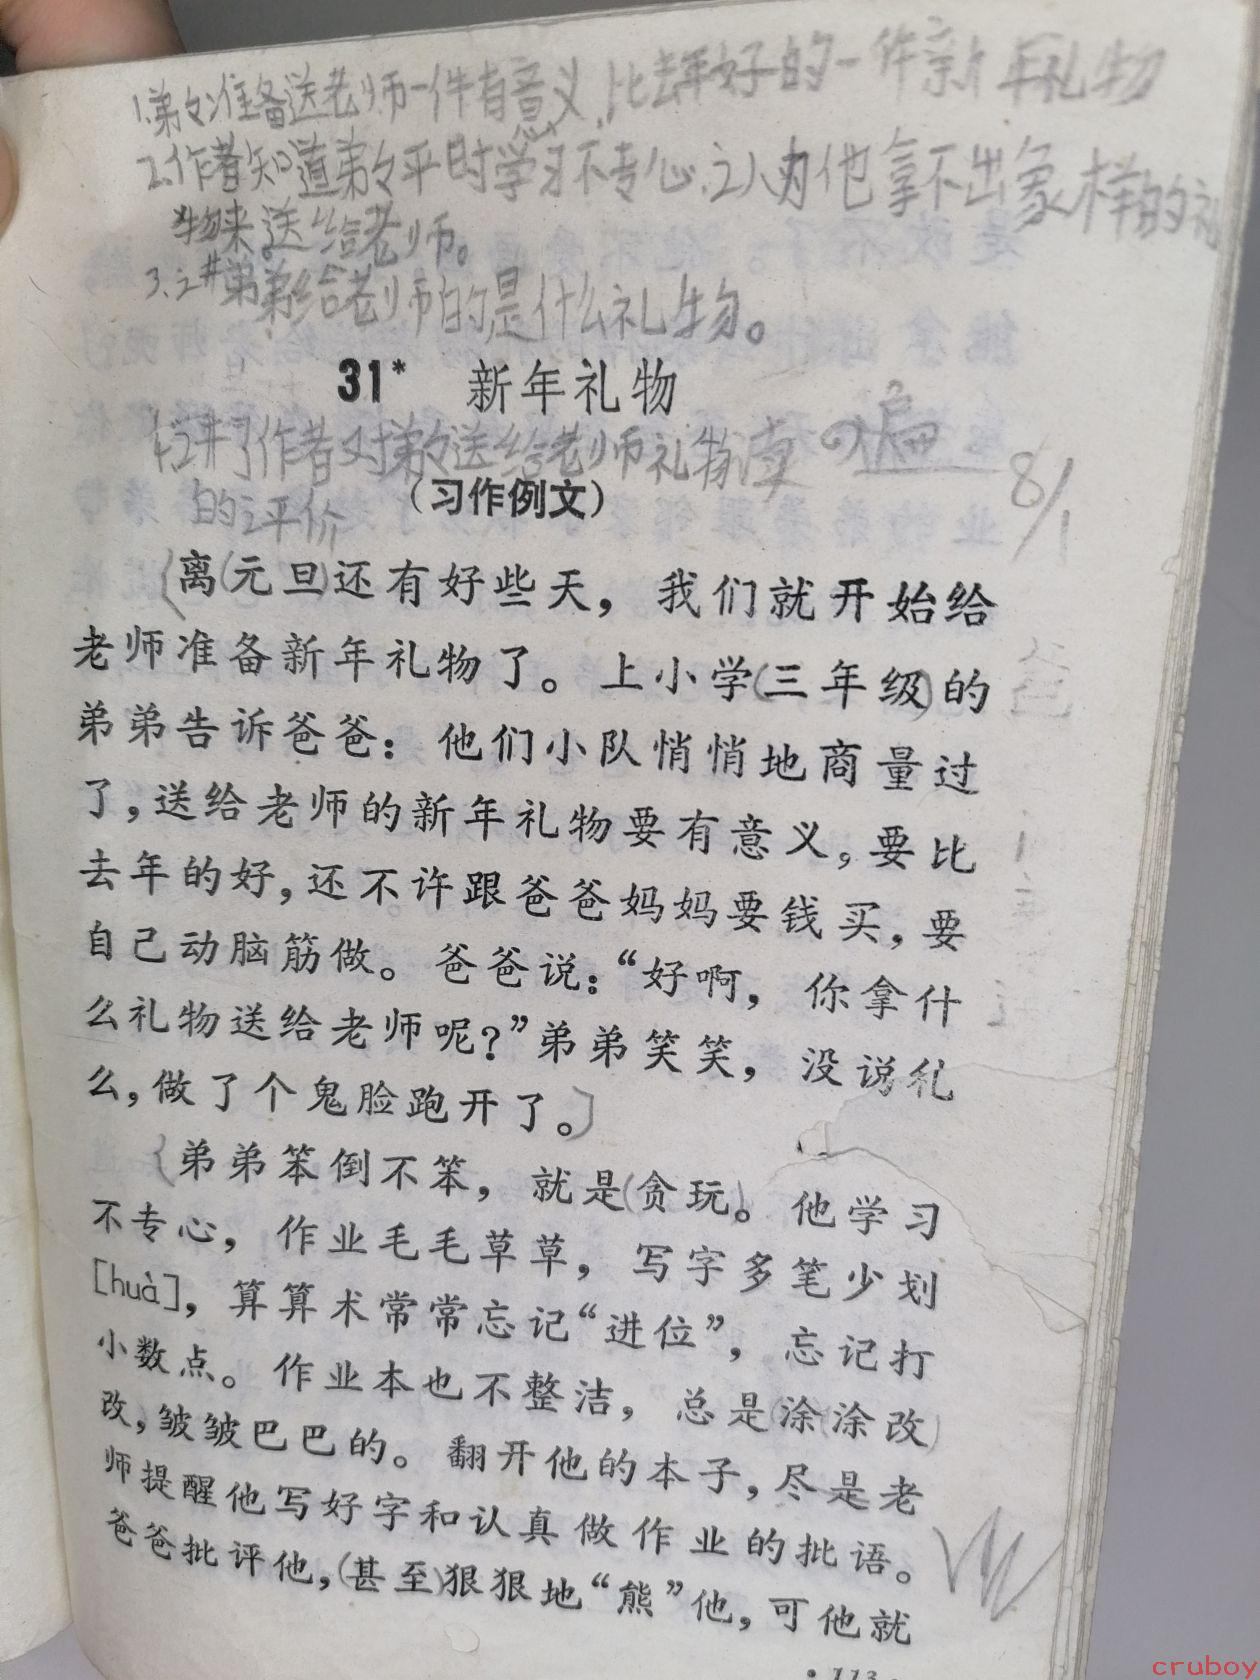 1.弟々准备送老师一件有意义,比去年好的一件新年礼物
2.作者知道弟々平时学习不专心,认为他拿不出象样的礼
物来送给老师。
3.讲弟弟给老师的是什么礼物。
31* 新年礼物
讲了作者对弟々送给老师礼物
8/1
的评价
(习作例文)
离(元旦)还有好些天，我们就开始给
老师准备新年礼物了。上小学(三年级)的
弟弟告诉爸爸：他们小队悄悄地商量过
了，送给老师的新年礼物要有意义，要比
去年的好，还不许跟爸爸妈妈要钱买，要
自己动脑筋做。爸爸说：“好啊，你拿什
么礼物送给老师呢？”弟弟笑笑，没说
么，做了个鬼脸跑开了。
弟弟笨倒不笨，就是(贪玩)。他学习
不专心，作业毛毛草草，写字多笔少划
[huà]，算算术常常忘记“进位”，忘记打
小数点。作业本也不整洁，总是(涂涂改
改，皱皱巴巴的。翻开他的本子，尽是老
师提醒他写好字和认真做作业的批语。
爸爸批评他，(甚至)狠狠地“熊”他，可他就
·113·
cruboy